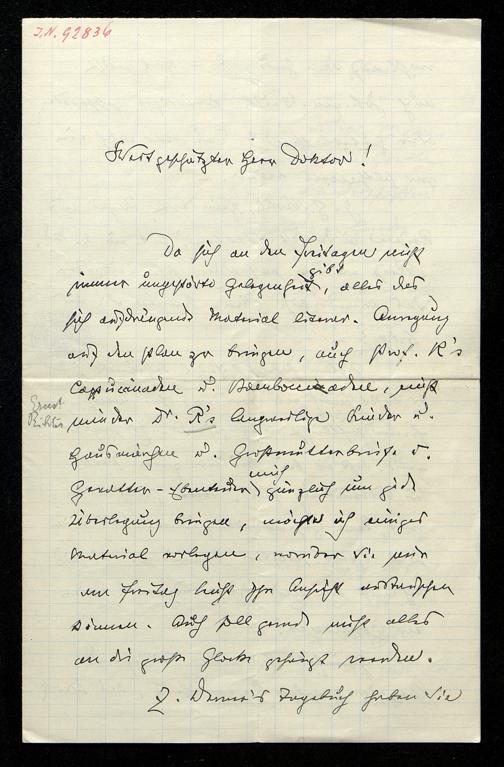 I.N. 92836
Wertgeschätzter Herr Doktor!
Da sich an den Freitagen nicht
immer ungestörte Gelegenheit gibt, alles das
sich aufdrängende Material literar. Anregung
auf den Plan zu bringen, auch Prof. K's
Capucinaden u. nicht
minder Dr. R's langweilige Kinder u.
Ernst Richter
Hausmärchen u. Großmutterbriefe u.
Gevatter - mich gänzlich um jede
Überlegung bringen, möchte ich einiges
Material vorlegen, worüber Sie mir
am Freitag leicht Ihre Ansicht
können. Auch soll gerade nicht alles
an die große Glocke gehängt werden.
Tagebuch haben Sie